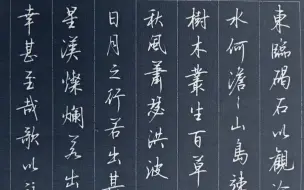 東臨碣石以觀
水何澹〻山島竦
樹木叢生百草
秋風蕭瑟洪波
日月之行若出其
星漢燦爛若出
幸甚至哉歌以